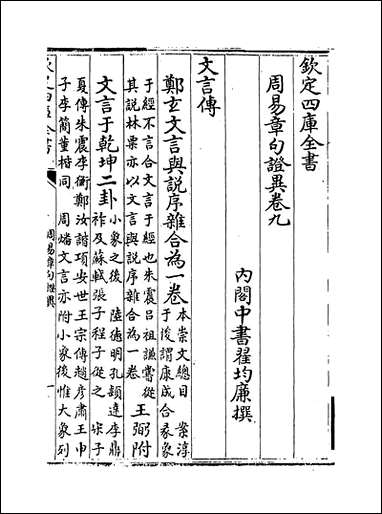 欽定四庫全書
周易章句證異卷九
內閣中書翟均廉撰
文言傳
鄭玄文言與說序雜合為一卷
本崇文總目 案淳
于俊謂康成合彖象
于經不言合文言于經也朱震吕祖謙嘗從
其說林栗亦以文言與說序雜合為一卷
王弼附
文言于乾坤二卦
小象之後 陸德明孔穎達李鼎
祚及蘇軾張子程子從之 宋子
夏傳朱震李衡鄭汝諧項安世王宗傳趙彥肅王申
子李簡董楷同 周燔文言亦附小象後惟大象列
周易章句證異
一